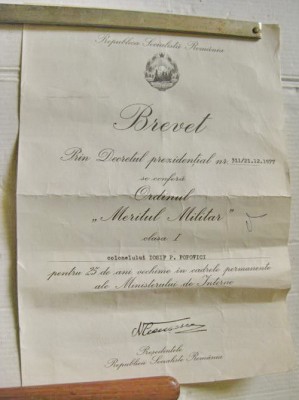 Republica Socialistă România
Brevet
Prin Decretul prezidenţial nr. 311/21.12.1977
se conferă
Ordinul
„Meritul Militar”
clasa I
colonelului IOSIF P. POPOVICI
pentru 25 de ani activitate în cadrele permanente
ale Ministerului de Interne
Preşedintele
Republicii Socialiste România